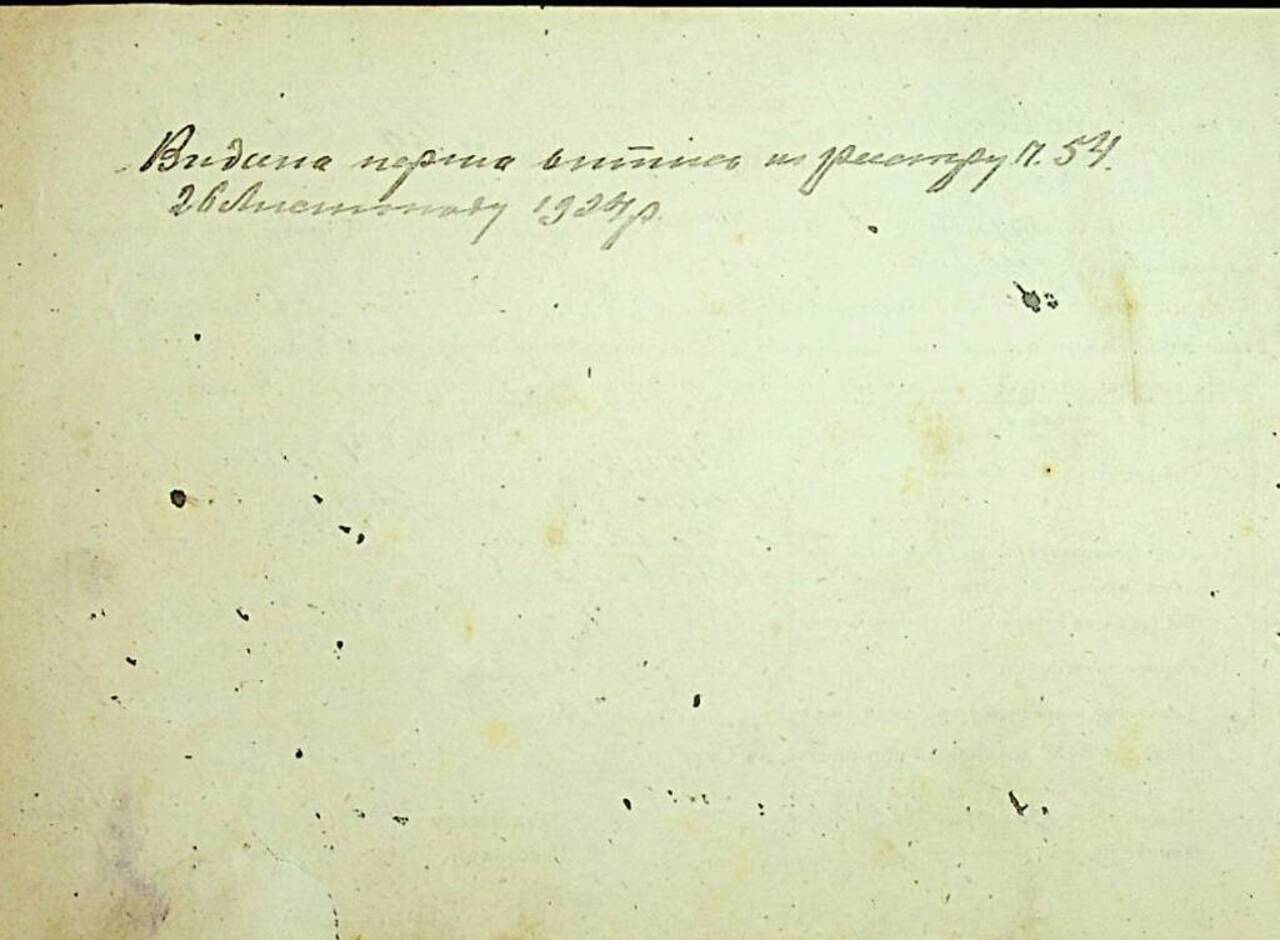 Видана перша витпись из реестру п. 54.
26 Листопаду 1924 р.